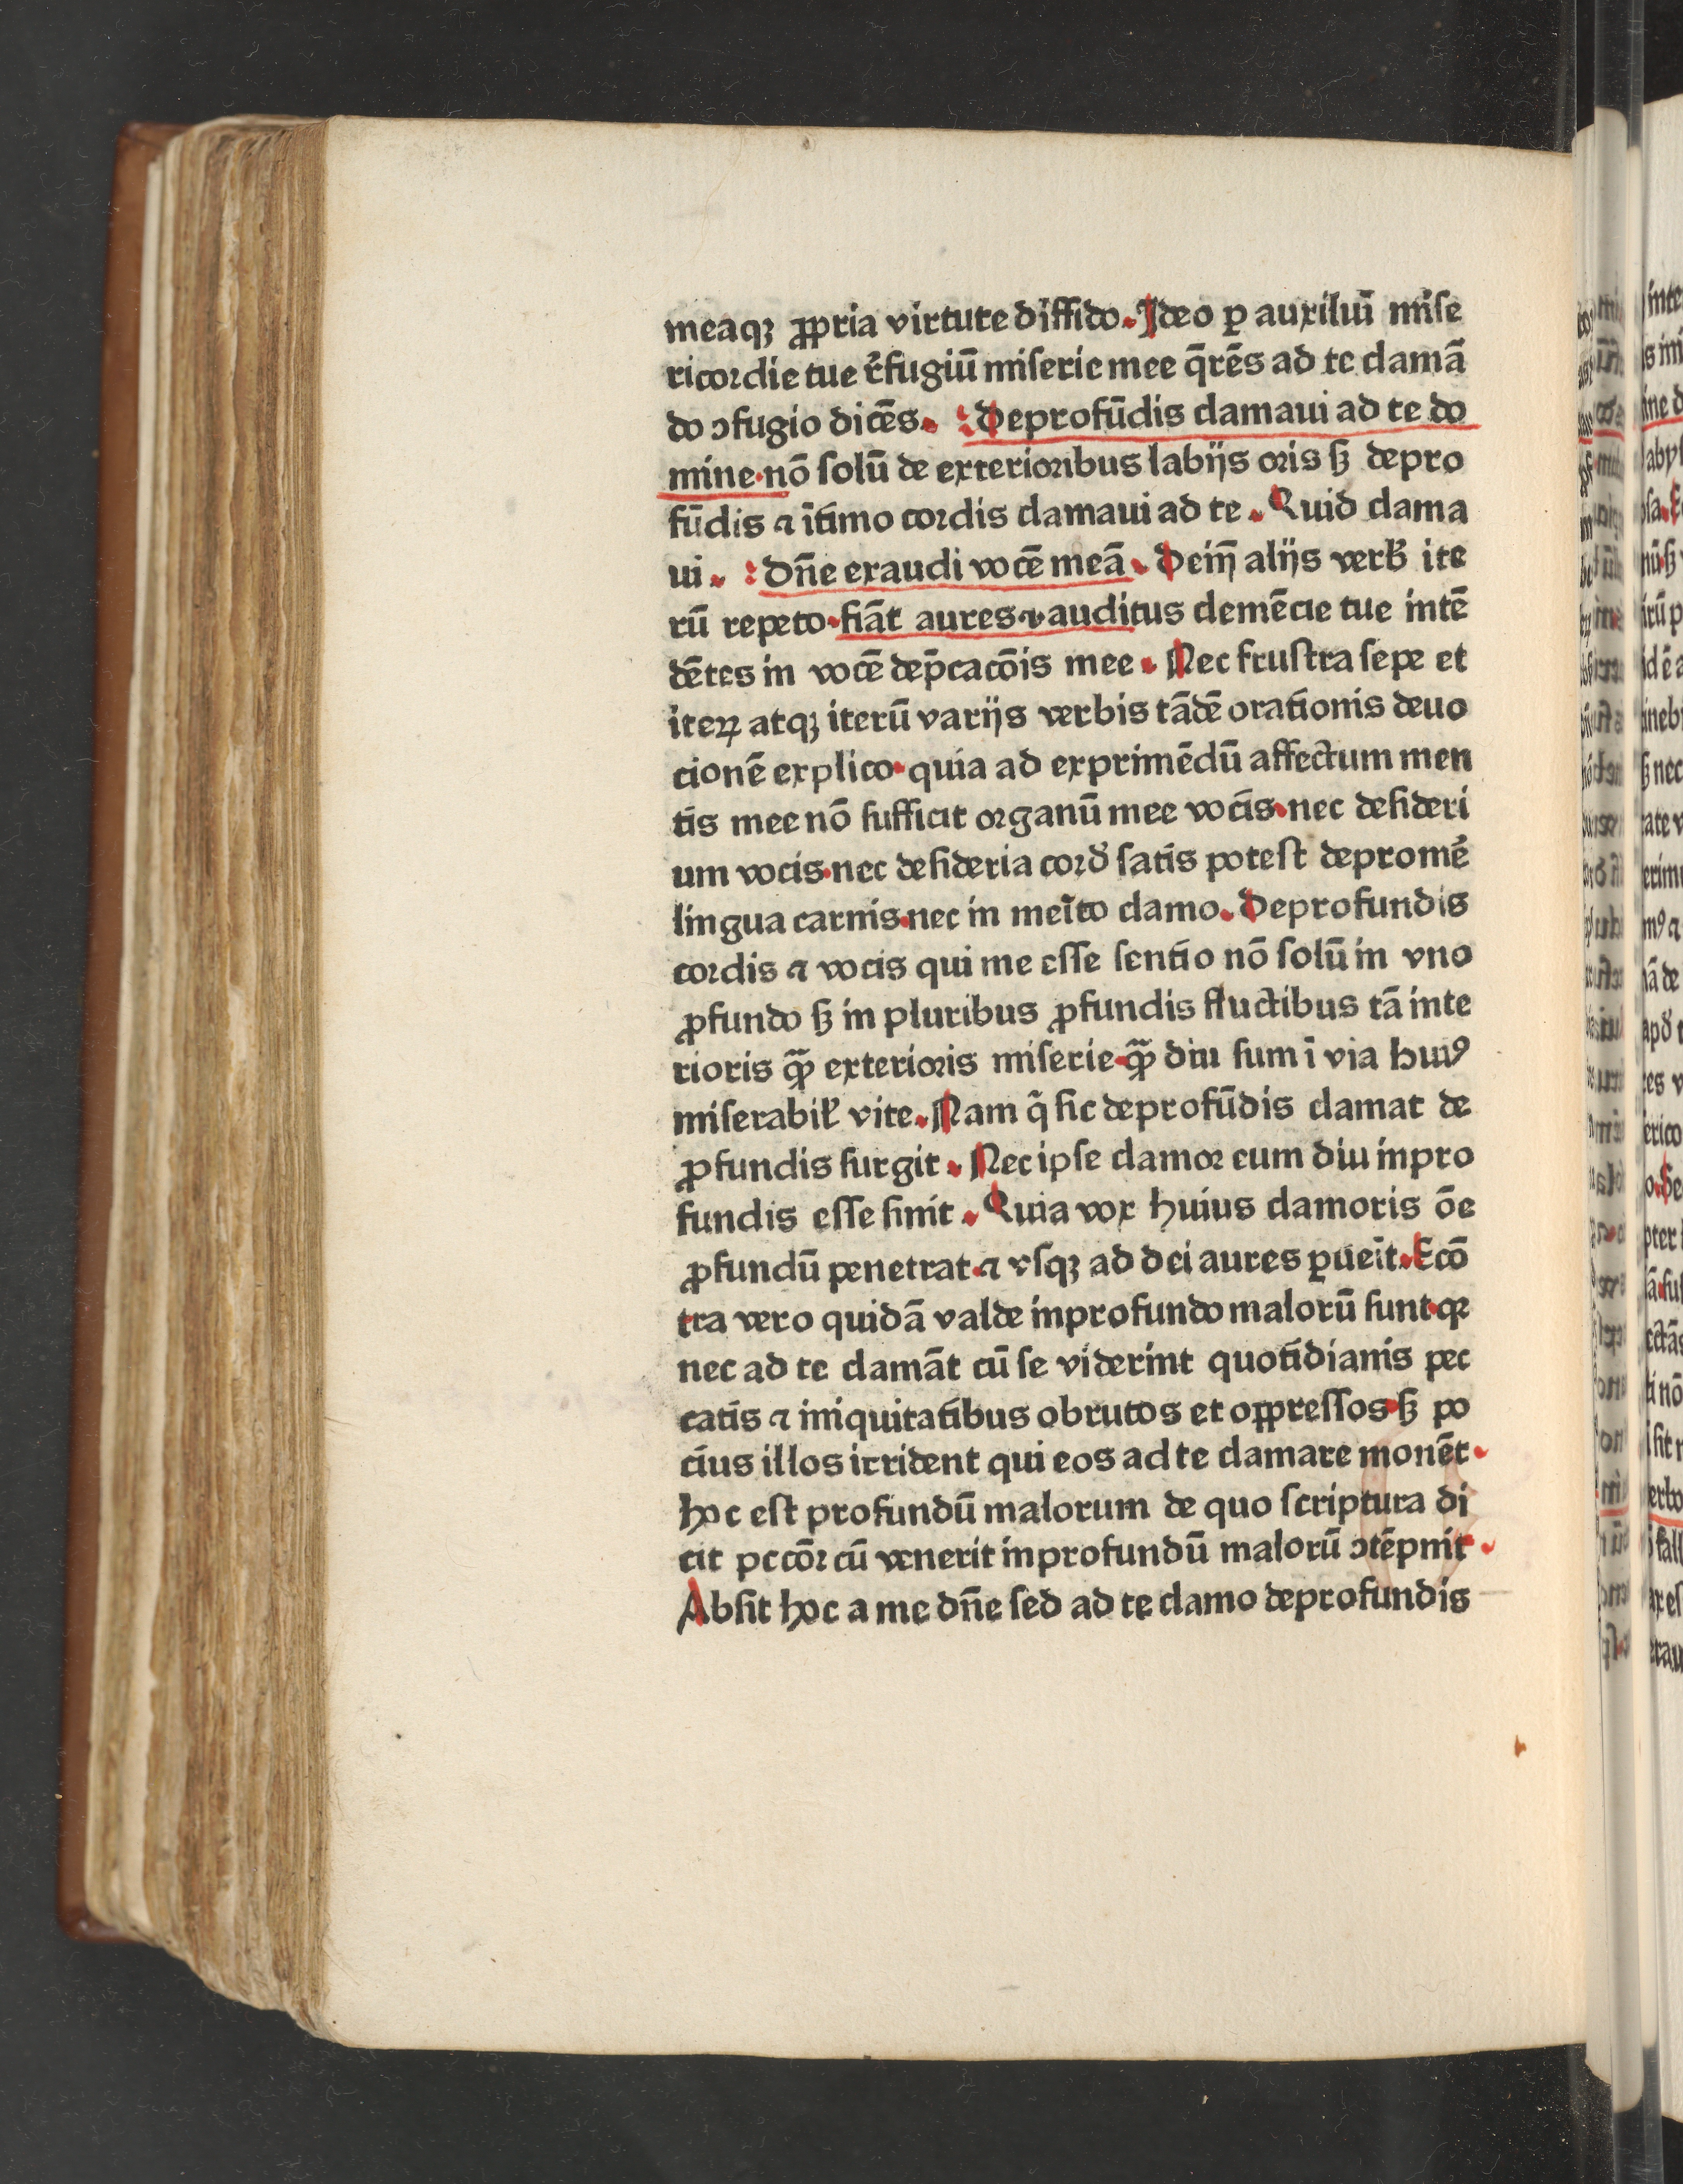 meaqꝫ ꝓpria virtute diffido. Ideo ꝑ auxiluī mise
ricordie tue r̄fugiū miserie mee q̄rēs ad te clamā
do ↄfugio dicēs. Deprofūdis clamaui ad te do
mine. nō solū de exterioribus labijs oris sꝫ depro
fūdis ⁊ ītimo cordis clamaui ad te. Quid clama
ui. Dn̄e exaudi vocē meā. Dein̄ alijs verb̄ ite
rū repeto. fiāt aures ⁊ auditus clemēcie tue intē
dētes in vocē dep̄cacōis mee. Nec frustra sepe et
iteꝝ atqꝫ iterū varijs verbis tādē orationis deuo
cionē explico. quia ad exprimēdū affectum men
tis mee nō sufficit organū mee vocis. nec desideri
um vocis. nec desideria cord̄ satis potest depromē
lingua carnis. nec in meīto clamo. Deprofundis
cordis ⁊ vocis qui me esse sentio nō solū in vno
ꝓfundo sꝫ in pluribus ꝓfundis fluctibus tā inte
rioris qͣꝫ exterioris miserie. qͣꝫ diu sum ī via huiꝰ
miserabil̄ vite. Nam q̄ sic deprofūdis clamat de
ꝓfundis surgit. Nec ipse clamor eum diu inpro
fundis esse sinit. Quia vox huius clamoris ōe
ꝓfundū penetrat. ⁊ vsqꝫ ad dei aures ꝑueīt. Ecō
tra vero quidā valde inprofundo malorū sunt. qꝛ
nec ad te clamāt cū se viderint quotidianis pec
catis ⁊ iniquitatibus obrutos et oppressos. sꝫ po
cius illos irrident qui eos ad te clamare monēt.
hoc est profundū malorum de quo scriptura di
cit pccōr cū venerit inprofundū malorū ↄtēpnit.
Absit hoc a me dn̄e sed ad te clamo deprofundis